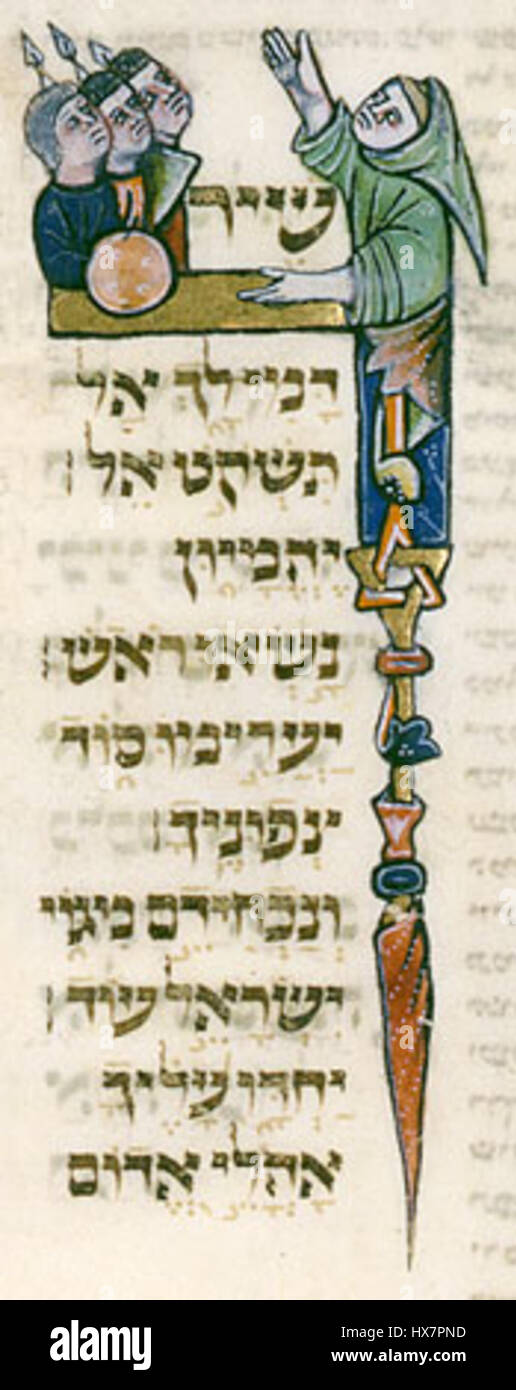 שיר
דמי לך אל
תשקט אל
יהמיון
נשאו ראש
יערימו סוד
צפוניך
ונכחידם מגוי
ישראל עוד
יחדו עליך
אהלי אדום
alamy
alamy
Image ID: HX7PND
www.alamy.com